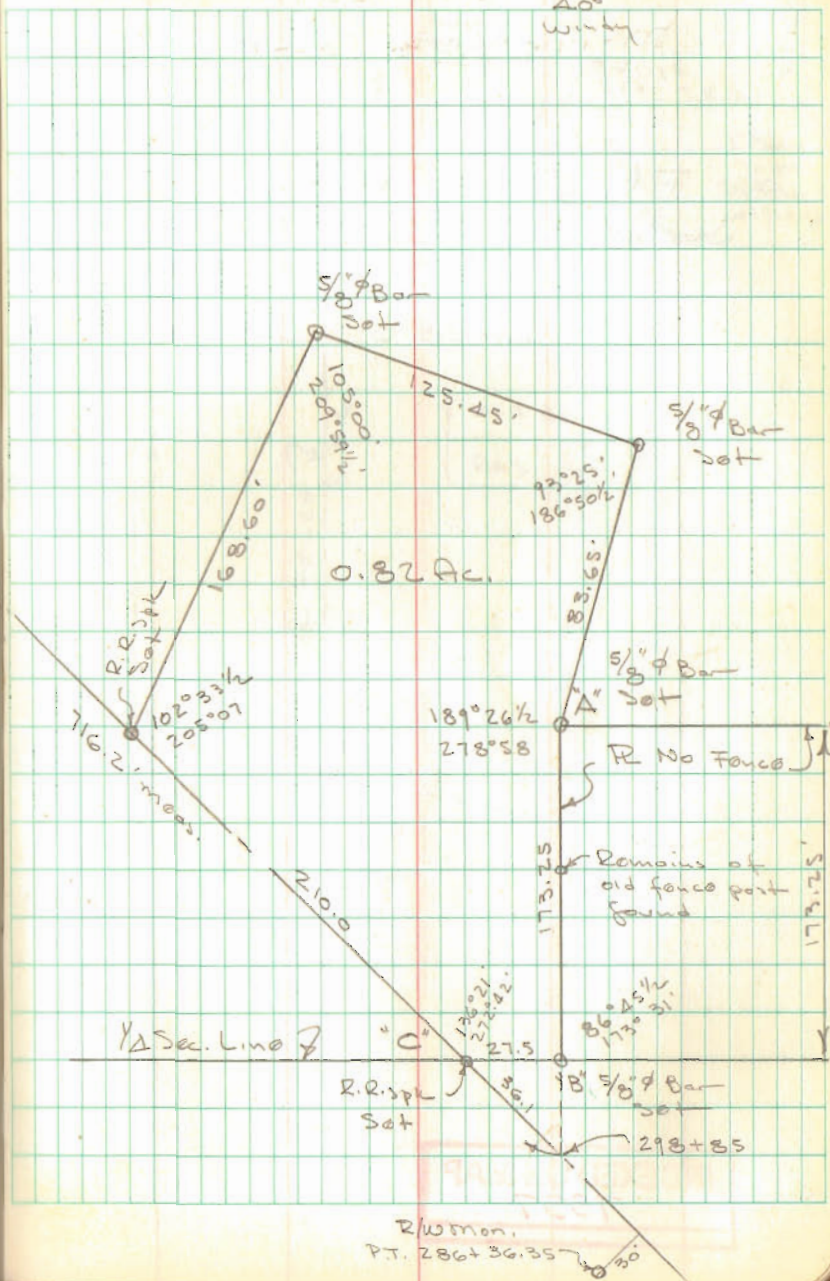 40°
Windy
5/8" φ Bar
Set
105°00'
209°59 1/2'
125.45'
5/8" φ Bar
Set
93°25'
186°50 1/2
168.60'
0.82 Ac.
83.65'
R.R. Spk
Set
102°33 1/2
205°07
716.2' meas.
5/8" φ Bar
Set
"A"
189°26 1/2
278°58
PL No Fence
173.25
Remains of
old fence post
found
173.25'
210.0
136°21'
272°42'
86°45 1/2
173°31'
1/4 Sec. Line
"C"
27.5
R.R. Spk
Set
36.1
"B" 5/8" φ Bar
Set
298+85
R/W Mon.
P.T. 286+36.35
30'